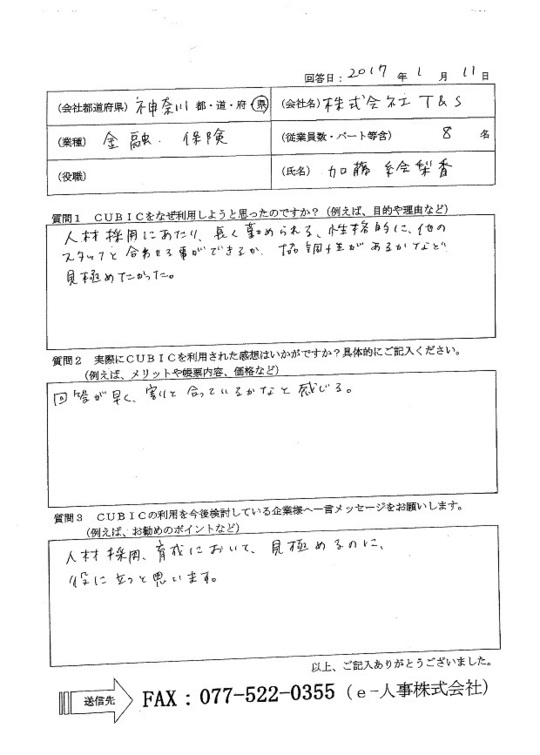 回答日：2017年1月11日
（会社都道府県）神奈川 都・道・府・県
（会社名）株式会社T&S
（業種）金融・保険
（従業員数・パート等含）8名
（役職）
（氏名）加藤 絵梨香
質問１　ＣＵＢＩＣをなぜ利用しようと思ったのですか？（例えば、目的や理由など）
人材採用にあたり、長く勤められる、性格的に、他の
スタッフと合わせる事ができるか、協調性があるかなど
見極めたかった。
質問２　実際にＣＵＢＩＣを利用された感想はいかがですか？具体的にご記入ください。
（例えば、メリットや帳票内容、価格など）
回答が早く、割りと合っているかなと感じる。
質問３　ＣＵＢＩＣの利用を今後検討している企業様へ一言メッセージをお願いします。
（例えば、お勧めのポイントなど）
人材採用、育成において、見極めるのに、
役に立つと思います。
以上、ご記入ありがとうございました。
送信先　FAX：077-522-0355（e-人事株式会社）